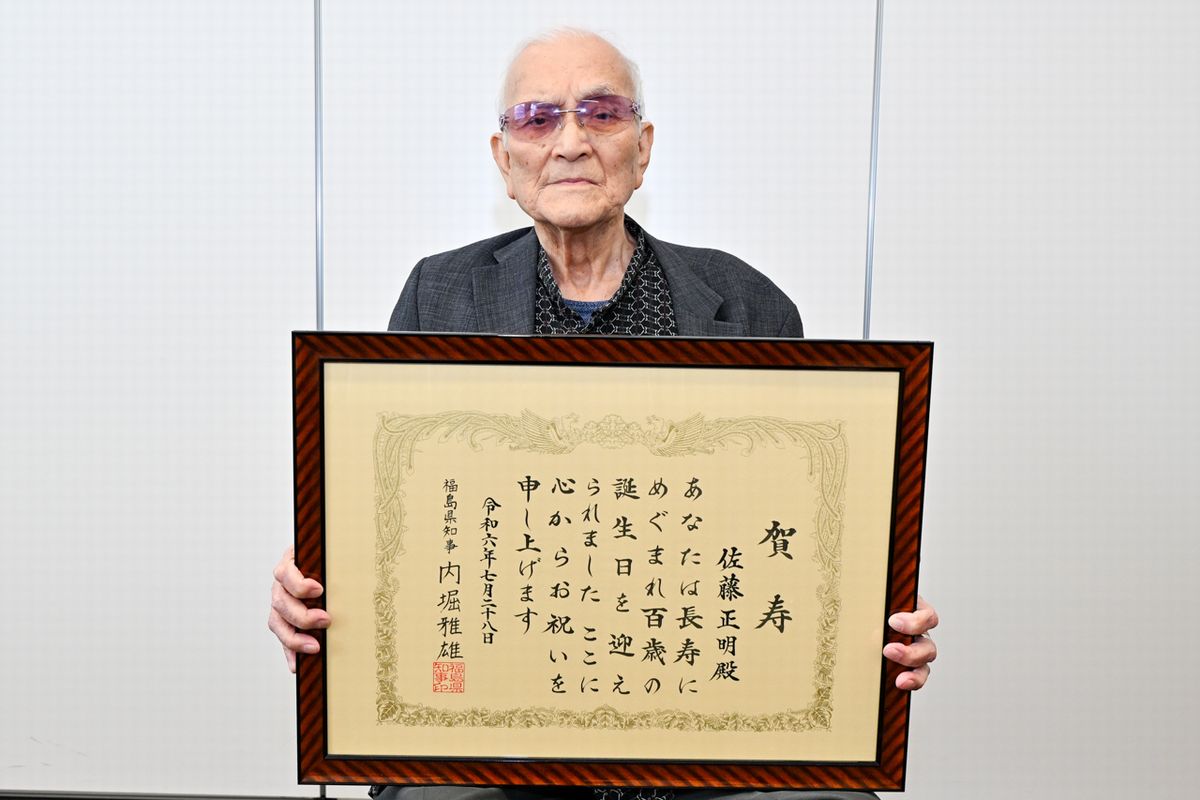 賀寿
佐藤正明殿
あなたは長寿に
めぐまれ百歳の
誕生日を迎え
られました ここに
心からお祝いを
申し上げます
令和六年七月二十八日
福島県知事 内堀雅雄
福島県
知事印